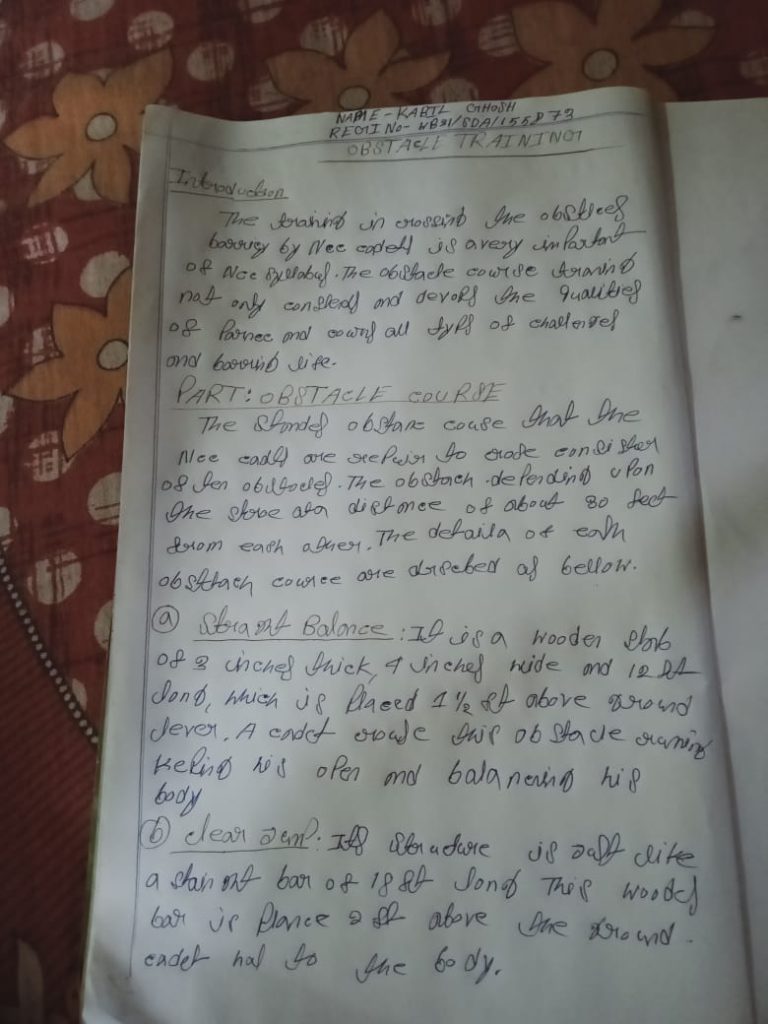 NAME - KABIL GHOSH
REGI No - WB21/SDA/155873
OBSTACLE TRAINING
Introduction
The training in crossing the obstlces
by Ncc cadets is a very importont
of Ncc syllabus. The obstacle course training
not only consteds and devops the qualities
of and all typs of challenges
and life.
PART: OBSTACLE COURSE
The obstare couse that the
Ncc cadts are to
of ten obstacles. The obstach depending upon
the at a distonce of about 30 feet
from each other. The details of each
obsttach cource are as bellow.
(a) Straight Balance: It is a wooden
of 3 inches thick, 4 inches wide and 12 ft
long, which is placed 1 1/2 ft above ground
lever. A cadet this obstacle running
Keping his open and his
body
(b) clear Jump: Its structure is Just like
a bar of 18 ft long This
bar is 2 ft above the ground.
cadet has to the body.